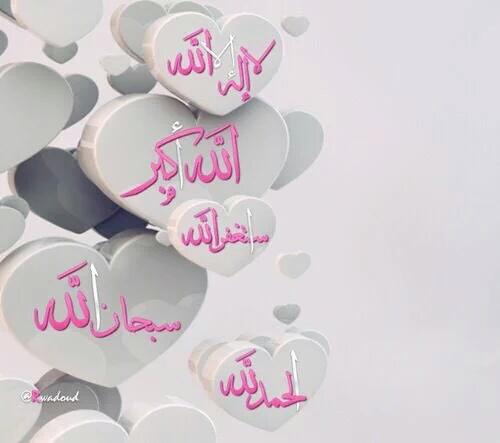 لا إله إلا الله
الله أكبر
استغفر الله
سبحان الله
الحمد لله
@Kwadoud